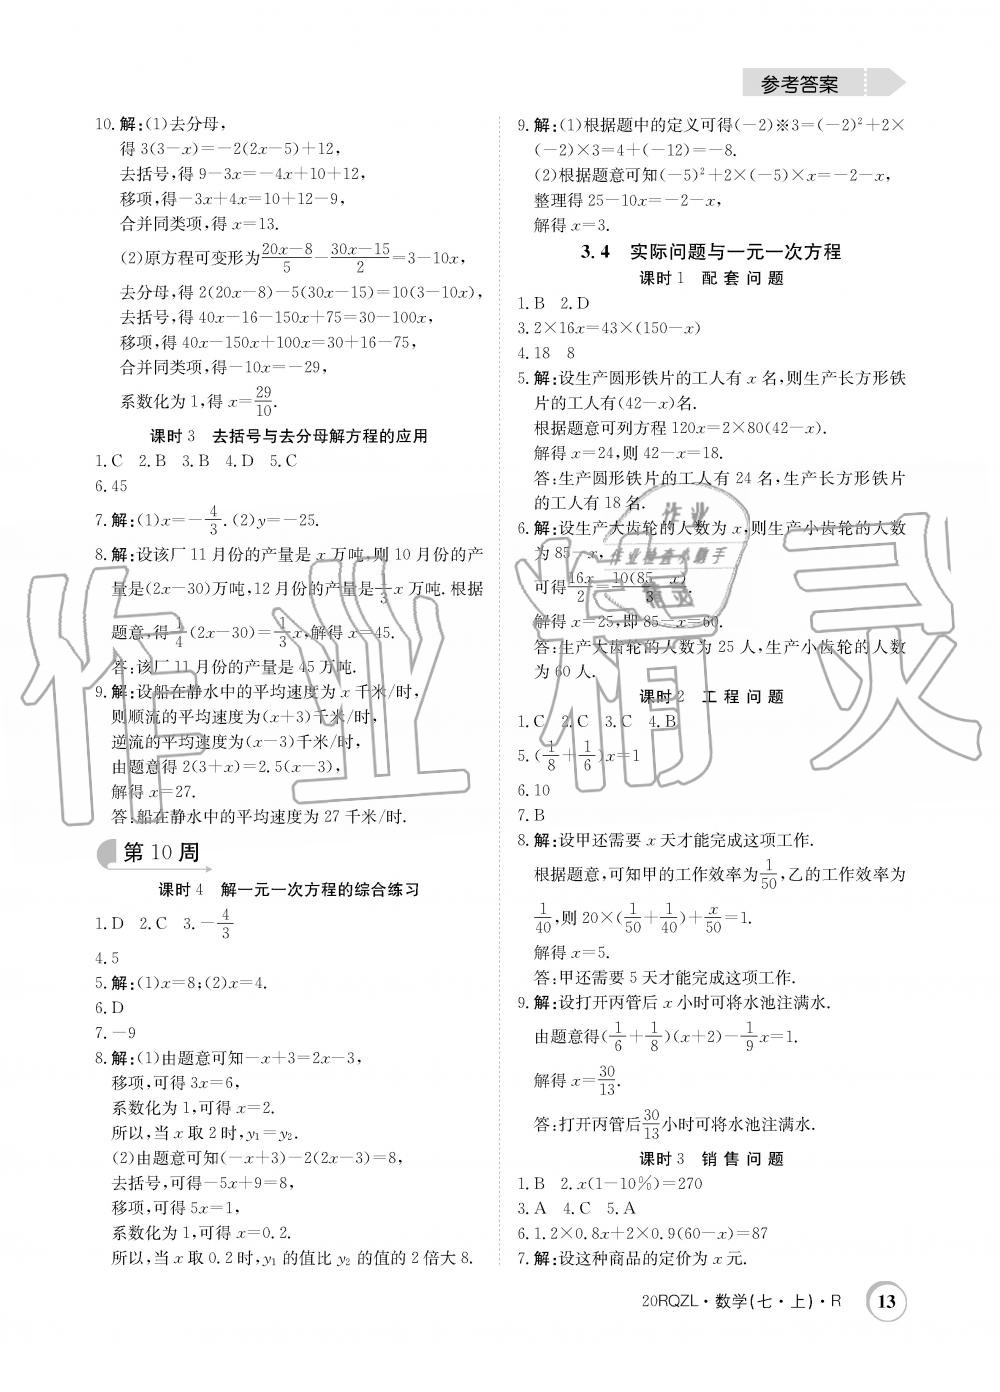 参考答案
10.解:(1)去分母,
得3(3-x)=-2(2x-5)+12,
去括号,得9-3x=-4x+10+12,
移项,得-3x+4x=10+12-9,
合并同类项,得x=13.
(2)原方程可变形为\frac{20x-8}{5}-\frac{30x-15}{2}=3-10x,
去分母,得2(20x-8)-5(30x-15)=10(3-10x),
去括号,得40x-16-150x+75=30-100x,
移项,得40x-150x+100x=30+16-75,
合并同类项,得-10x=-29,
系数化为1,得x=\frac{29}{10}.
课时3 去括号与去分母解方程的应用
1.C 2.B 3.B 4.D 5.C
6.45
7.解:(1)x=-\frac{4}{3}.(2)y=-25.
8.解:设该厂11月份的产量是x万吨,则10月份的产
量是(2x-30)万吨,12月份的产量是\frac{1}{3}x万吨.根据
题意,得\frac{1}{4}(2x-30)=\frac{1}{3}x,解得x=45.
答:该厂11月份的产量是45万吨.
9.解:设船在静水中的平均速度为x千米/时,
则顺流的平均速度为(x+3)千米/时,
逆流的平均速度为(x-3)千米/时,
由题意得2(3+x)=2.5(x-3),
解得x=27.
答:船在静水中的平均速度为27千米/时.
第10周
课时4 解一元一次方程的综合练习
1.D 2.C 3.-\frac{4}{3}
4.5
5.解:(1)x=8;(2)x=4.
6.D
7.-9
8.解:(1)由题意可知-x+3=2x-3,
移项,可得3x=6,
系数化为1,可得x=2.
所以,当x取2时,y₁=y₂.
(2)由题意可知(-x+3)-2(2x-3)=8,
去括号,可得-5x+9=8,
移项,可得5x=1,
系数化为1,可得x=0.2.
所以,当x取0.2时,y₁的值比y₂的值的2倍大8.
9.解:(1)根据题中的定义可得(-2)※3=(-2)²+2×
(-2)×3=4+(-12)=-8.
(2)根据题意可知(-5)²+2×(-5)×x=-2-x,
整理得25-10x=-2-x,
解得x=3.
3.4 实际问题与一元一次方程
课时1 配套问题
1.B 2.D
3.2×16x=43×(150-x)
4.18 8
5.解:设生产圆形铁片的工人有x名,则生产长方形铁
片的工人有(42-x)名.
根据题意可列方程120x=2×80(42-x).
解得x=24,则42-x=18.
答:生产圆形铁片的工人有24名,生产长方形铁片
的工人有18名.
6.解:设生产大齿轮的人数为x,则生产小齿轮的人数
为85-x,
可得\frac{16x}{2}=\frac{10(85-x)}{3}.
解得x=25,即85-x=60.
答:生产大齿轮的人数为25人,生产小齿轮的人数
为60人.
课时2 工程问题
1.C 2.C 3.C 4.B
5.(\frac{1}{8}+\frac{1}{6})x=1
6.10
7.B
8.解:设甲还需要x天才能完成这项工作.
根据题意,可知甲的工作效率为\frac{1}{50},乙的工作效率为
\frac{1}{40},则20×(\frac{1}{50}+\frac{1}{40})+\frac{x}{50}=1.
解得x=5.
答:甲还需要5天才能完成这项工作.
9.解:设打开丙管后x小时可将水池注满水.
由题意得(\frac{1}{6}+\frac{1}{8})(x+2)-\frac{1}{9}x=1.
解得x=\frac{30}{13}.
答:打开丙管后\frac{30}{13}小时可将水池注满水.
课时3 销售问题
1.B 2.x(1-10%)=270
3.A 4.C 5.A
6.1.2×0.8x+2×0.9(60-x)=87
7.解:设这种商品的定价为x元.
20RQZL·数学(七·上)·R 13
作业精灵
作业
作业检查小助手
精灵